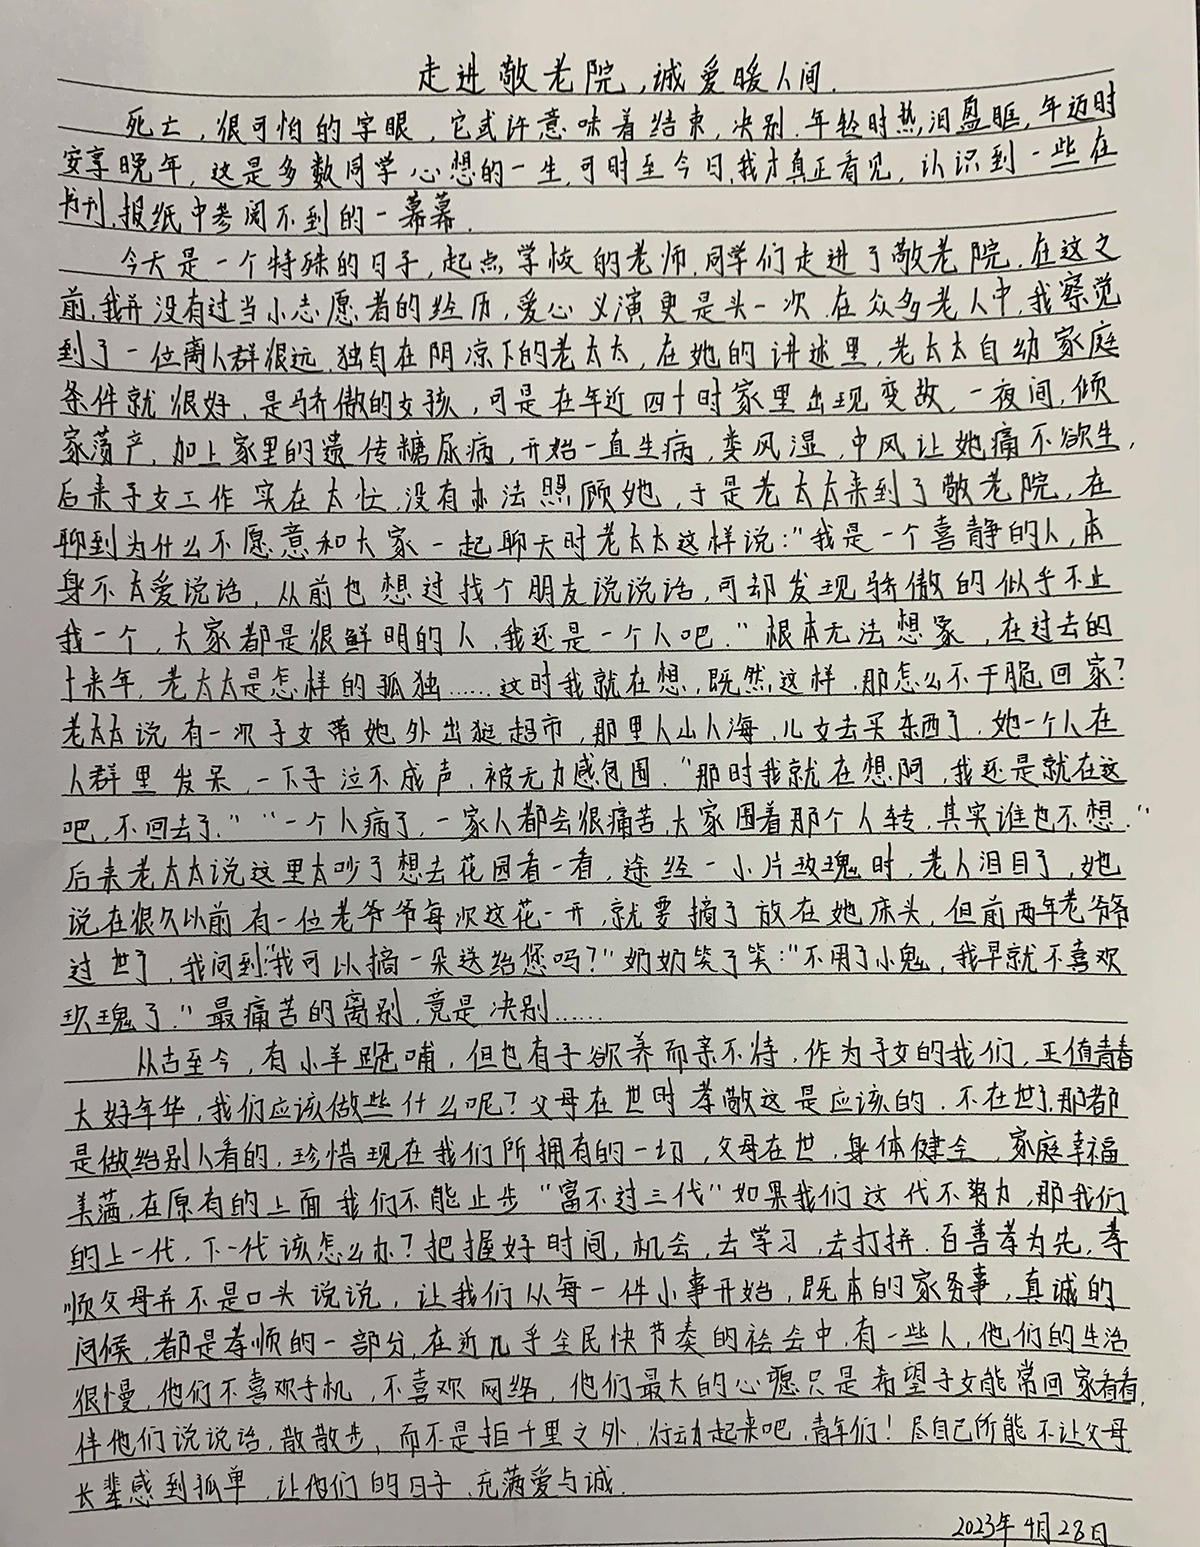 走进敬老院,诚爱暖人间.
死亡,很可怕的字眼,它或许意味着结束,决别.年轻时热泪盈眶,年迈时
安享晚年,这是多数同学心想的一生,可时至今日,我才真正看见,认识到一些在
书刊,报纸中参阅不到的一幕幕.
今天是一个特殊的日子,起点学校的老师,同学们走进了敬老院.在这之
前,我并没有过当小志愿者的经历,爱心义演更是头一次.在众多老人中,我察觉
到了一位离人群很远,独自在阴凉下的老太太,在她的讲述里,老太太自幼家庭
条件就很好,是骄傲的女孩,可是在年近四十时家里出现变故,一夜间,倾
家荡产,加上家里的遗传糖尿病,开始一直生病,类风湿,中风让她痛不欲生,
后来子女工作实在太忙,没有办法照顾她,于是老太太来到了敬老院,在
聊到为什么不愿意和大家一起聊天时老太太这样说:"我是一个喜静的人,本
身不太爱说话,从前也想过找个朋友说说话,可却发现骄傲的似乎不止
我一个,大家都是很鲜明的人,我还是一个人吧."根本无法想象,在过去的
十来年,老太太是怎样的孤独……这时我就在想,既然这样,那怎么不干脆回家?
老太太说有一次子女带她外出逛超市,那里人山人海,儿女去买东西了,她一个人在
人群里发呆,一下子泣不成声,被无力感包围."那时我就在想阿,我还是就在这
吧,不回去了.""一个人病了,一家人都会很痛苦,大家围着那个人转,其实谁也不想."
后来老太太说这里太吵了想去花园看一看,途经一小片玫瑰时,老人泪目了,她
说在很久以前有一位老爷爷每次这花一开,就要摘了放在她床头,但前两年老爷爷
过世了,我问到"我可以摘一朵送给您吗?"奶奶笑了笑:"不用了小鬼,我早就不喜欢
玫瑰了."最痛苦的离别,竟是决别……
从古至今,有小羊跪哺,但也有子欲养而亲不待,作为子女的我们,正值青春
大好年华,我们应该做些什么呢?父母在世时孝敬这是应该的.不在世了,那都
是做给别人看的,珍惜现在我们所拥有的一切,父母在世,身体健全,家庭幸福
美满,在原有的上面我们不能止步"富不过三代"如果我们这代不努力,那我们
的上一代,下一代该怎么办?把握好时间,机会,去学习,去打拼.百善孝为先,孝
顺父母并不是口头说说,让我们从每一件小事开始,既本的家务事,真诚的
问候,都是孝顺的一部分,在近几乎全民快节奏的社会中,有一些人,他们的生活
很慢,他们不喜欢手机,不喜欢网络,他们最大的心愿只是希望子女能常回家看看,
伴他们说说话,散散步,而不是拒千里之外.行动起来吧,青年们!尽自己所能不让父母
长辈感到孤单,让他们的日子,充满爱与诚.
2023年4月28日